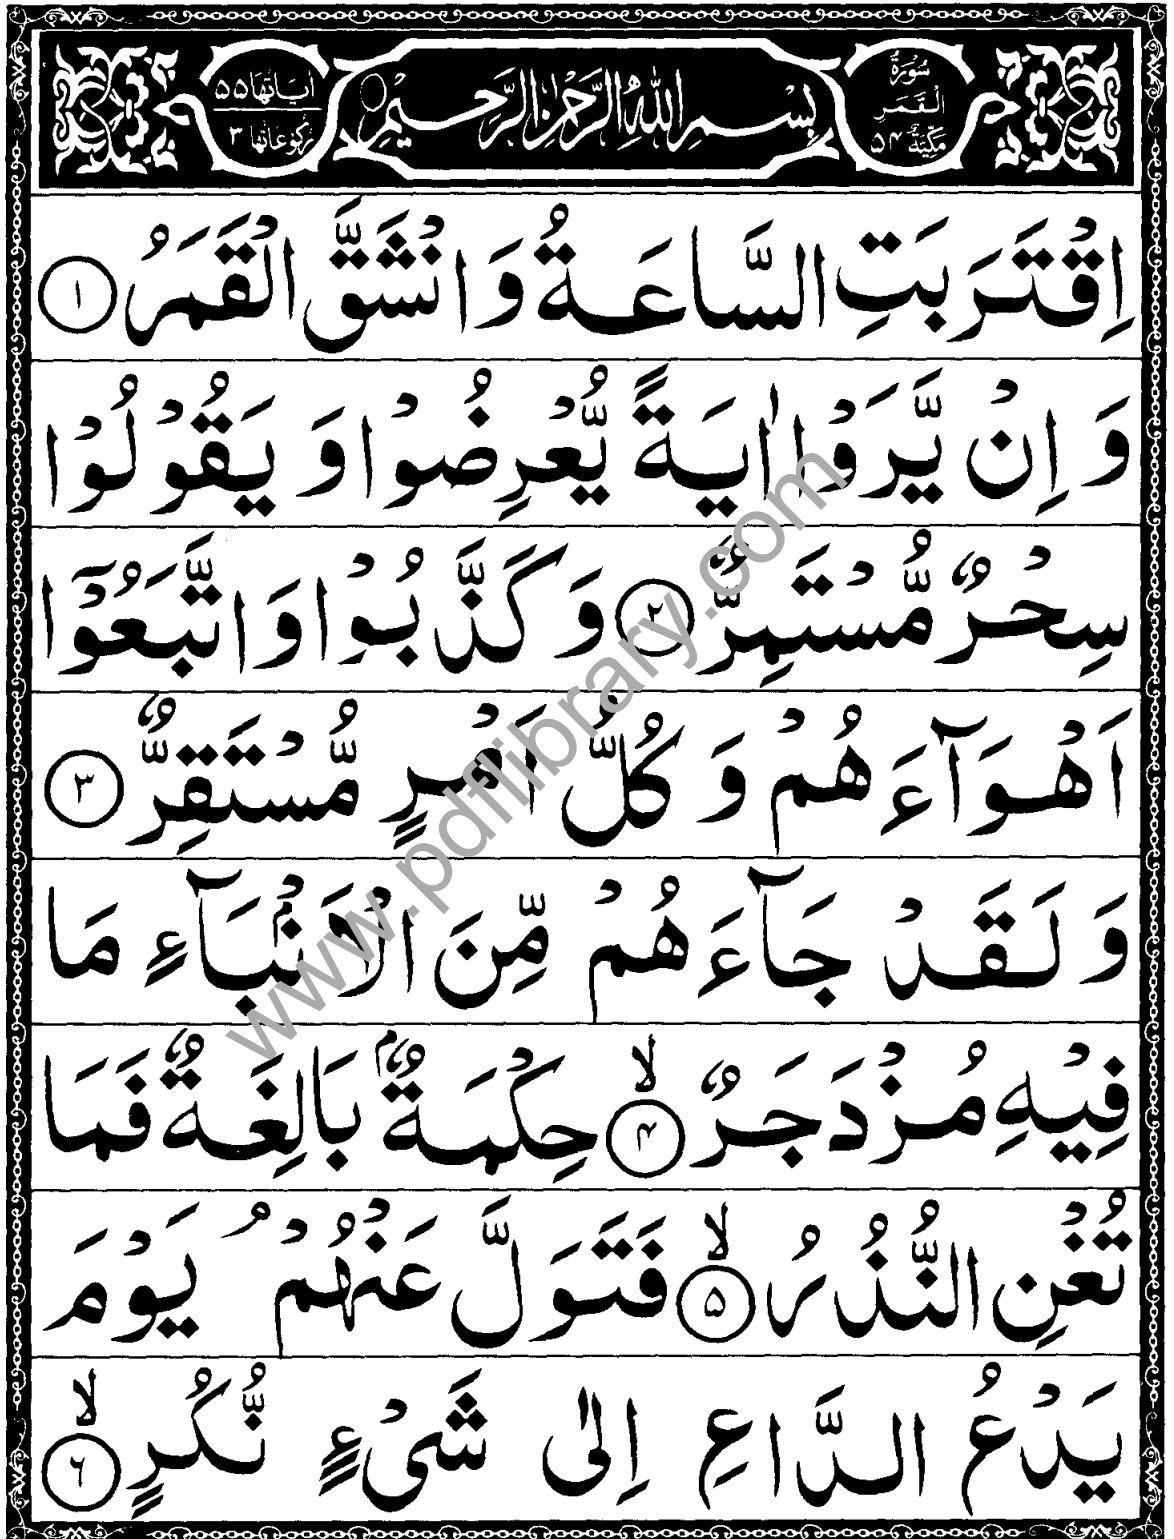 سُوْرَةُ
الْقَمَرِ
مَكِّيَّة ٥٤
بِسْمِ اللّٰهِ الرَّحْمٰنِ الرَّحِيْمِ
اٰيَاتُهَا ٥٥
رُكُوْعَاتُهَا ٣
اِقْتَرَبَتِ السَّاعَةُ وَ انْشَقَّ الْقَمَرُ ١
وَ اِنْ يَّرَوْا اٰيَةً يُّعْرِضُوْا وَ يَقُوْلُوْا
سِحْرٌ مُّسْتَمِرٌّ ٢ وَ كَذَّبُوْا وَ اتَّبَعُوْۤا
اَهْوَآءَهُمْ وَ كُلُّ اَمْرٍ مُّسْتَقِرٌّ ٣
وَ لَقَدْ جَآءَهُمْ مِّنَ الْاَنْۢبَآءِ مَا
فِيْهِ مُزْدَجَرٌ ۙ ٤ حِكْمَةٌۢ بَالِغَةٌ فَمَا
تُغْنِ النُّذُرُ ۙ ٥ فَتَوَلَّ عَنْهُمْ ۘ يَوْمَ
يَدْعُ الدَّاعِ اِلٰى شَيْءٍ نُّكُرٍ ۙ ٦
www.pdflibrary.com